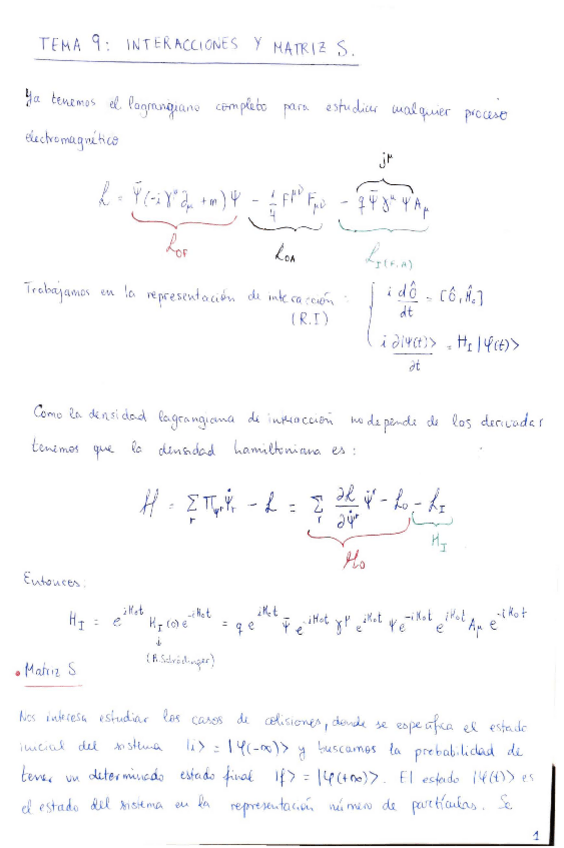 TEMA 9: INTERACCIONES Y MATRIZ S.
Ya tenemos el lagrangiano completo para estudiar cualquier proceso
electromagnético
j^μ
ℒ = Ψ̄(-iγ^μ ∂_μ + m)Ψ - 1/4 F^{μν} F_{μν} - q Ψ̄ γ^μ Ψ A_μ
ℒ_{OF} ℒ_{OA} ℒ_{I(F,A)}
Trabajamos en la representación de interacción: { i dÔ/dt = [Ô, Ĥ_0]
(R.I) i ∂|Ψ(t)>/∂t = H_I |Ψ(t)>
Como la densidad lagrangiana de interacción no depende de las derivadas
tenemos que la densidad hamiltoniana es:
ℋ = Σ_r Π_{Ψr} Ψ̇_r - ℒ = Σ_r ∂ℒ/∂Ψ̇^r Ψ̇^r - ℒ_0 - ℒ_I
ℋ_0 H_I
Entonces:
H_I = e^{iH_0t} H_I(0) e^{-iH_0t} = q e^{iH_0t} Ψ̄ e^{-iH_0t} γ^μ e^{iH_0t} Ψ e^{-iH_0t} e^{iH_0t} A_μ e^{-iH_0t}
↓
(R. Schrödinger)
• Matriz S
Nos interesa estudiar los casos de colisiones, donde se especifica el estado
inicial del sistema |i> = |Ψ(-∞)> y buscamos la probabilidad de
tener un determinado estado final |f> = |Ψ(+∞)>. El estado |Ψ(t)> es
el estado del sistema en la representación número de partículas. Se
1